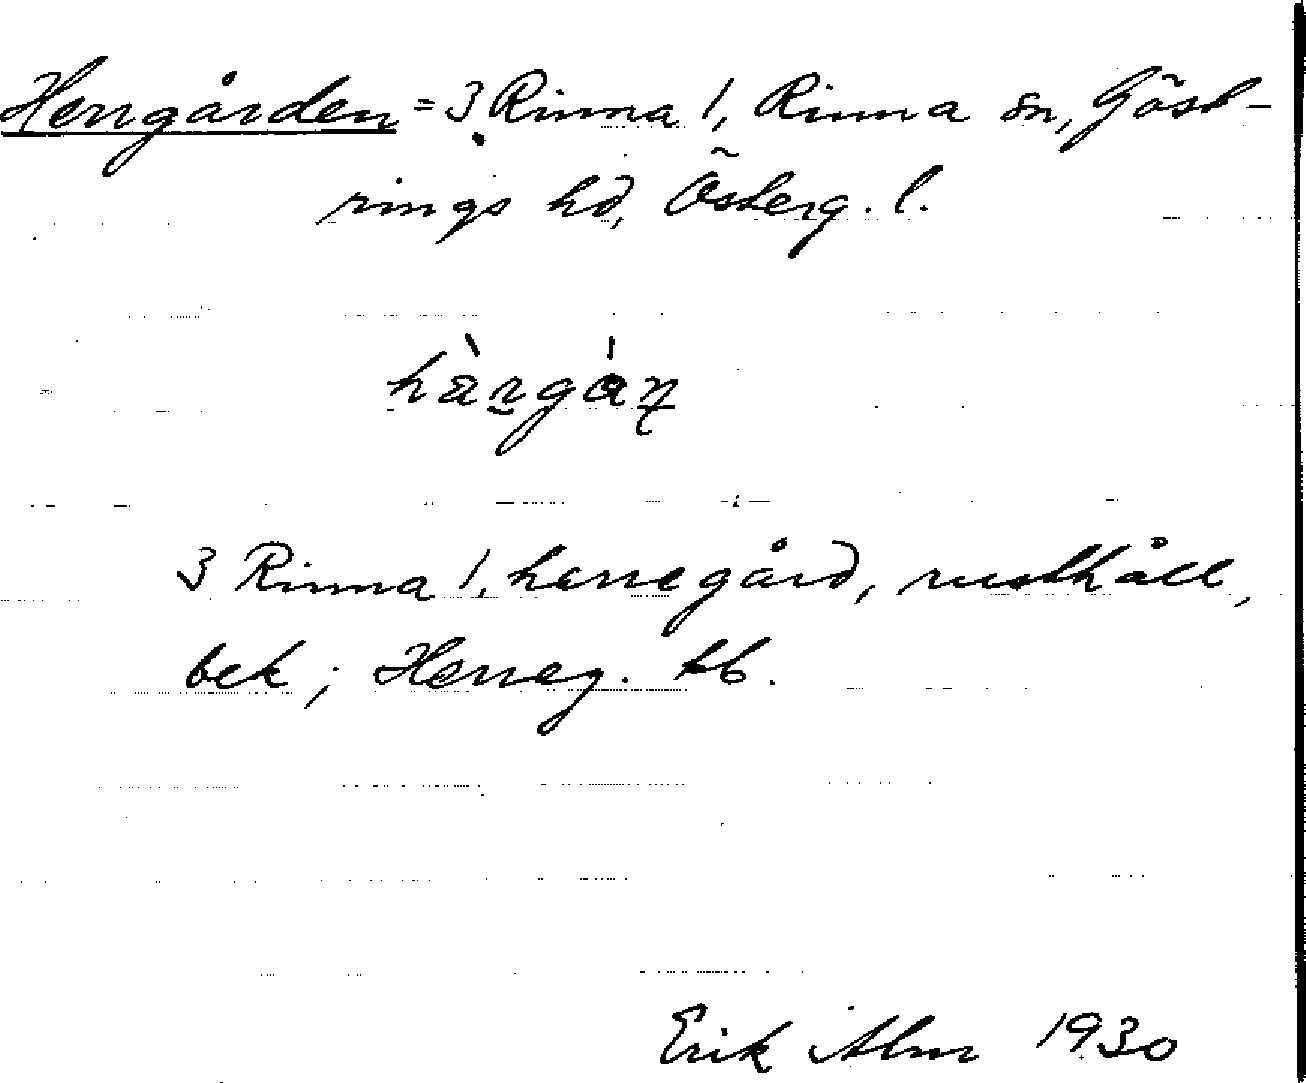 Herrgården = 3 Rinna 1, Rinna sn, Göst-
rings hd, Österg. l.
hàrgán
3 Rinna 1, herregård, rusthåll,
bek; Herreg. kb.
Erik Alm 1930